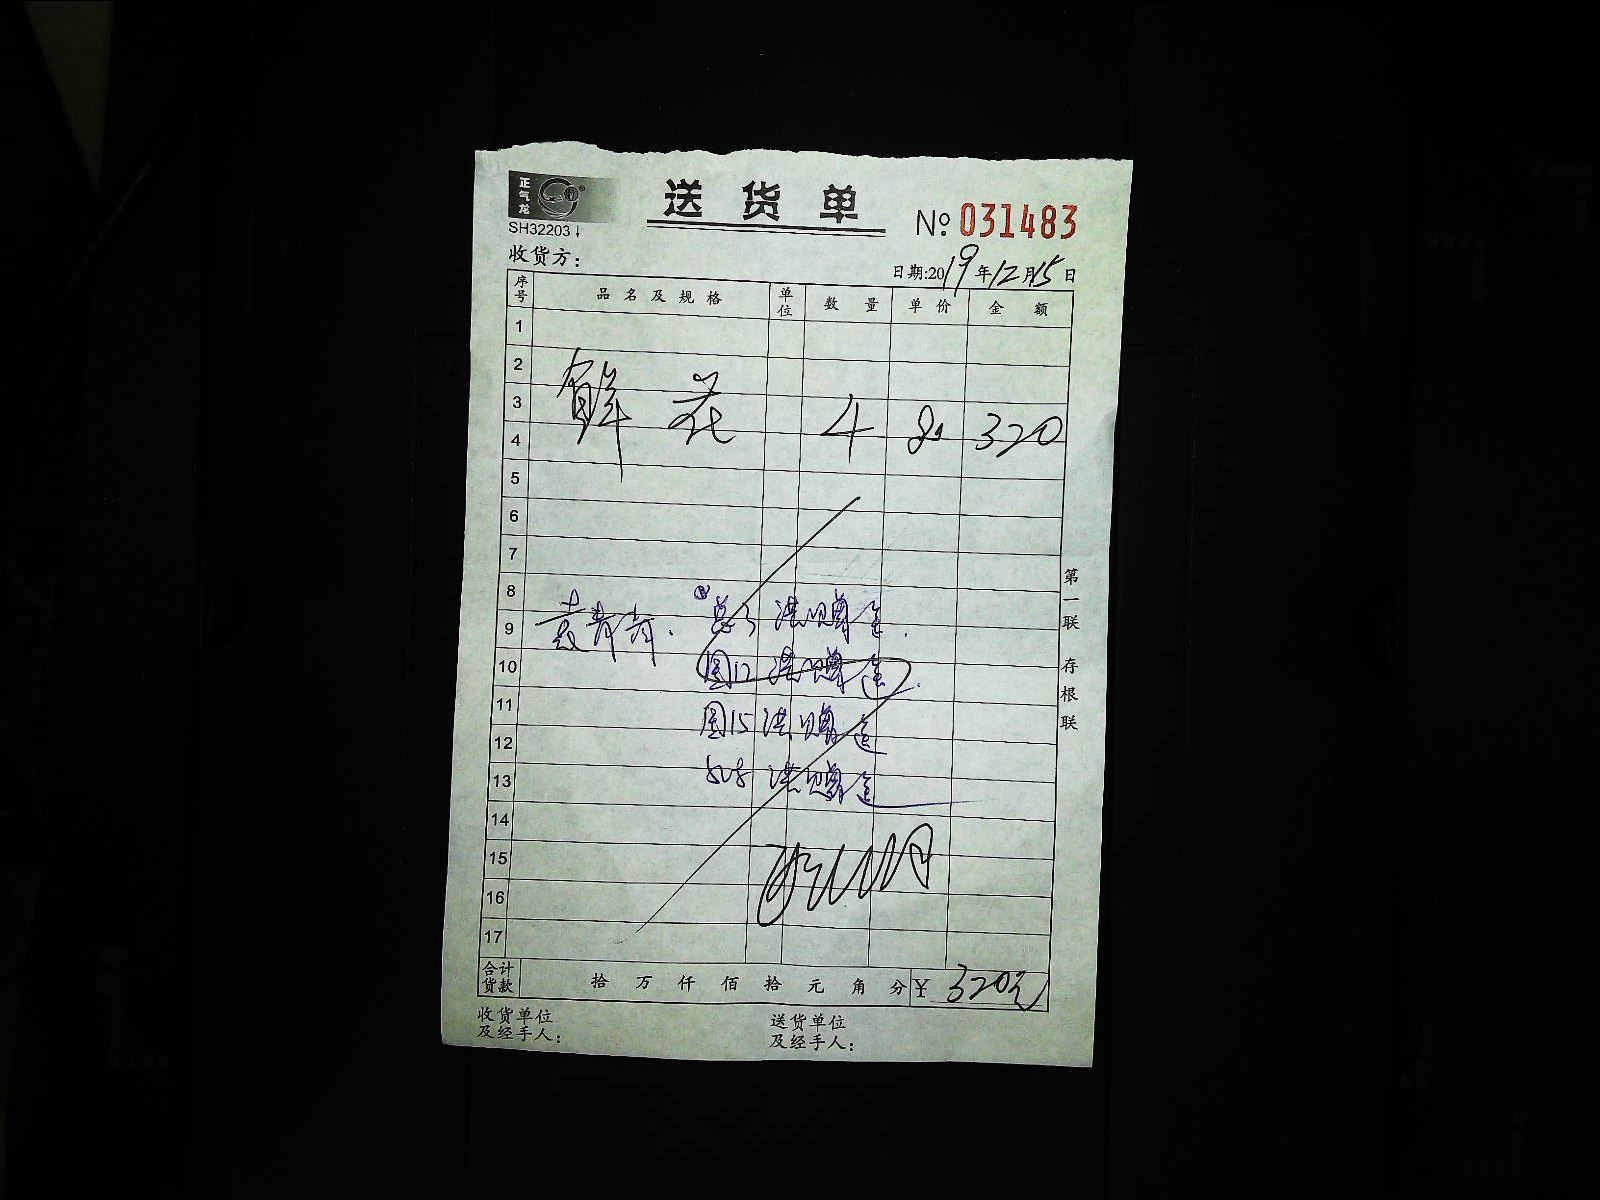 正气龙
送货单
SH32203
№ 031483
收货方：
日期:2019年12月15日
序号 品名及规格 单位 数量 单价 金额
1
2
3
鲜花 4 80 320
4
5
6
7
8
9
袁青青. 总3 洪赠送.
10
国12 洪赠送.
11
国15 洪赠送
12
13
洪赠送
14
15
16
17
合计货款 拾万仟佰拾元角分 ¥ 320元
第一联 存根联
收货单位 送货单位
及经手人： 及经手人：